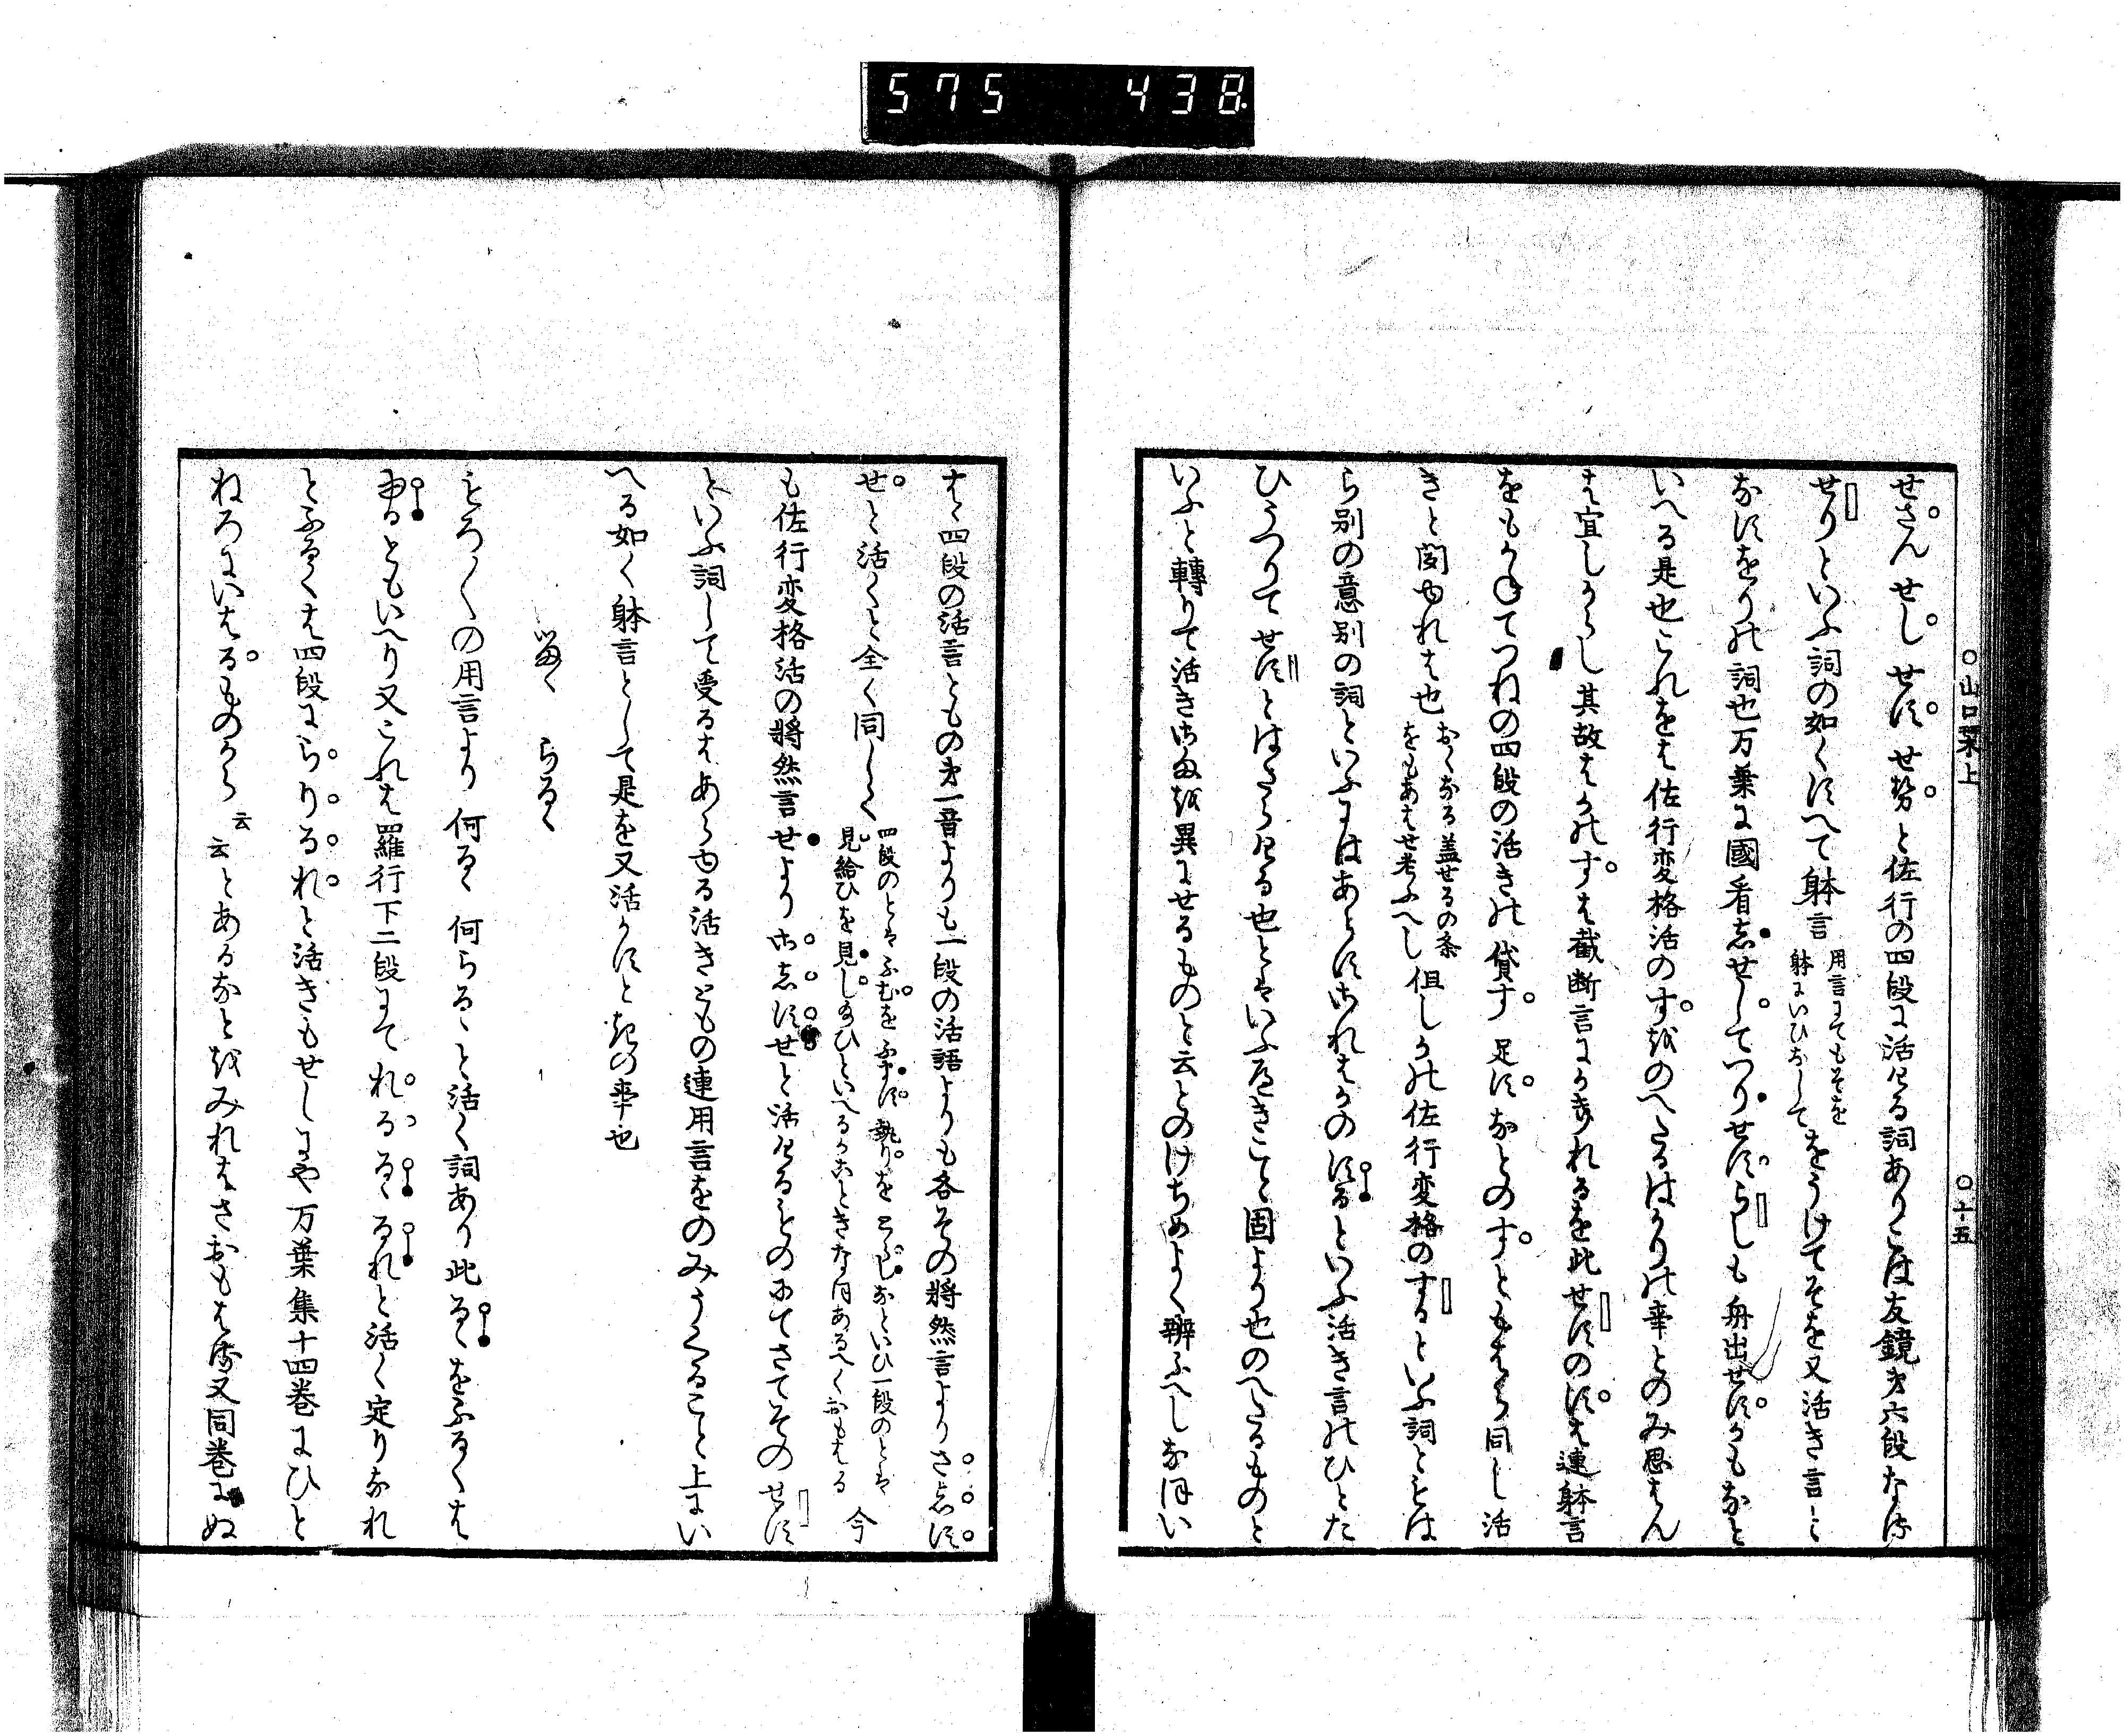 575 438
○山口栞上 ○十五
せさん せし せす せせ と佐行の四段に活ける詞ありこは友鏡才六段なる
せりといふ詞の如くすへて躰言
用言にてもそを
躰にいひなして
をうけてそを又活き言に
なすをりの詞也万葉に國看志せしてつりせすらしも舟出せすかもなと
いへる是也これをは佐行変格活のすをのへたるはかりの事とのみ思はん
は宜しからし其故はかのすは截断言にかきれるを此せすのすは連躰言
をもかねてつねの四段の活きの貸す足すなとのすともはら同し活
きと聞ゆれは也
おくなる蓋せるの条
をもあはせ考ふへし
但しかの佐行変格のするといふ詞とはは
ら別の意別の詞といふにはあらすされはかのするといふ活き言のひとた
ひうつりてせすとはなれる也とはいふへきこと固より也のへたるものと
いふと轉りて活きさまを異にせるものと云とのけちめよく辨ふへしなほい
はゝ四段の活言ともの才一音よりも一段の活語よりも各その将然言よりさしす
せと活くと全く同しく
四段のとはふむをふます執りをとらしなといひ一段のとは
見給ひを見し給ひといへるかこときなほあるへくおもはる
今
も佐行変格活の将然言せよりさしすせと活けるものにてさてそのせす
といふ詞して受るはあらゆる活きともの連用言をのみうくること上にい
へる如く躰言として是を又活かすと起の事也
るゝ らるゝ
もろ〱の用言より何るゝ何らるゝと活く詞あり此るゝをふるくは
ゆるともいへり又これは羅行下二段にてれるるゝるれと活く定りなれ
とふるくは四段にらりるれと活きもせしにや万葉集十四巻にひと
ねろにいはるものから云云とあるなとをみれはさおもはる又同巻にぬ